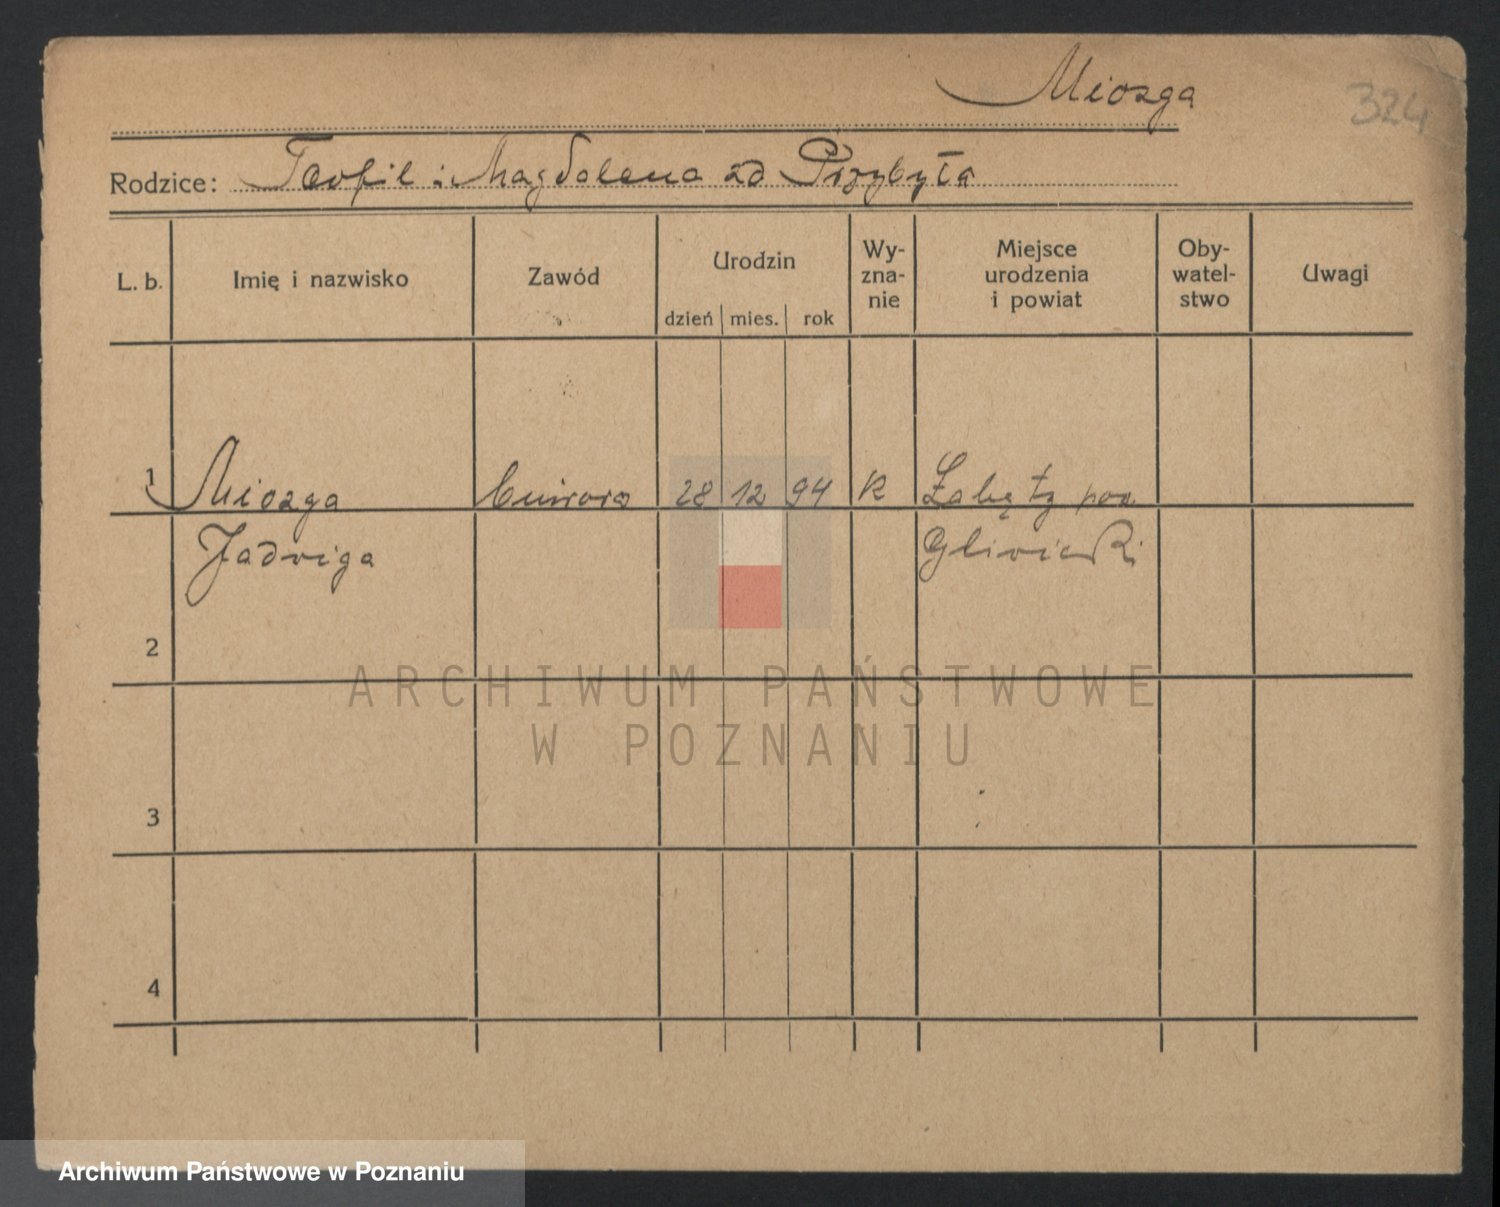 Miozga
324
Rodzice: Teofil i Magdalena zd Przybyła
L. b. Imię i nazwisko Zawód Urodzin dzień mies. rok Wy-zna-nie Miejsce urodzenia i powiat Oby-watel-stwo Uwagi
1 Miozga 28 12 94 R Łabęty pow.
Jadwiga Gliwicki
2
ARCHIWUM PAŃSTWOWE
W POZNANIU
3
4
Archiwum Państwowe w Poznaniu